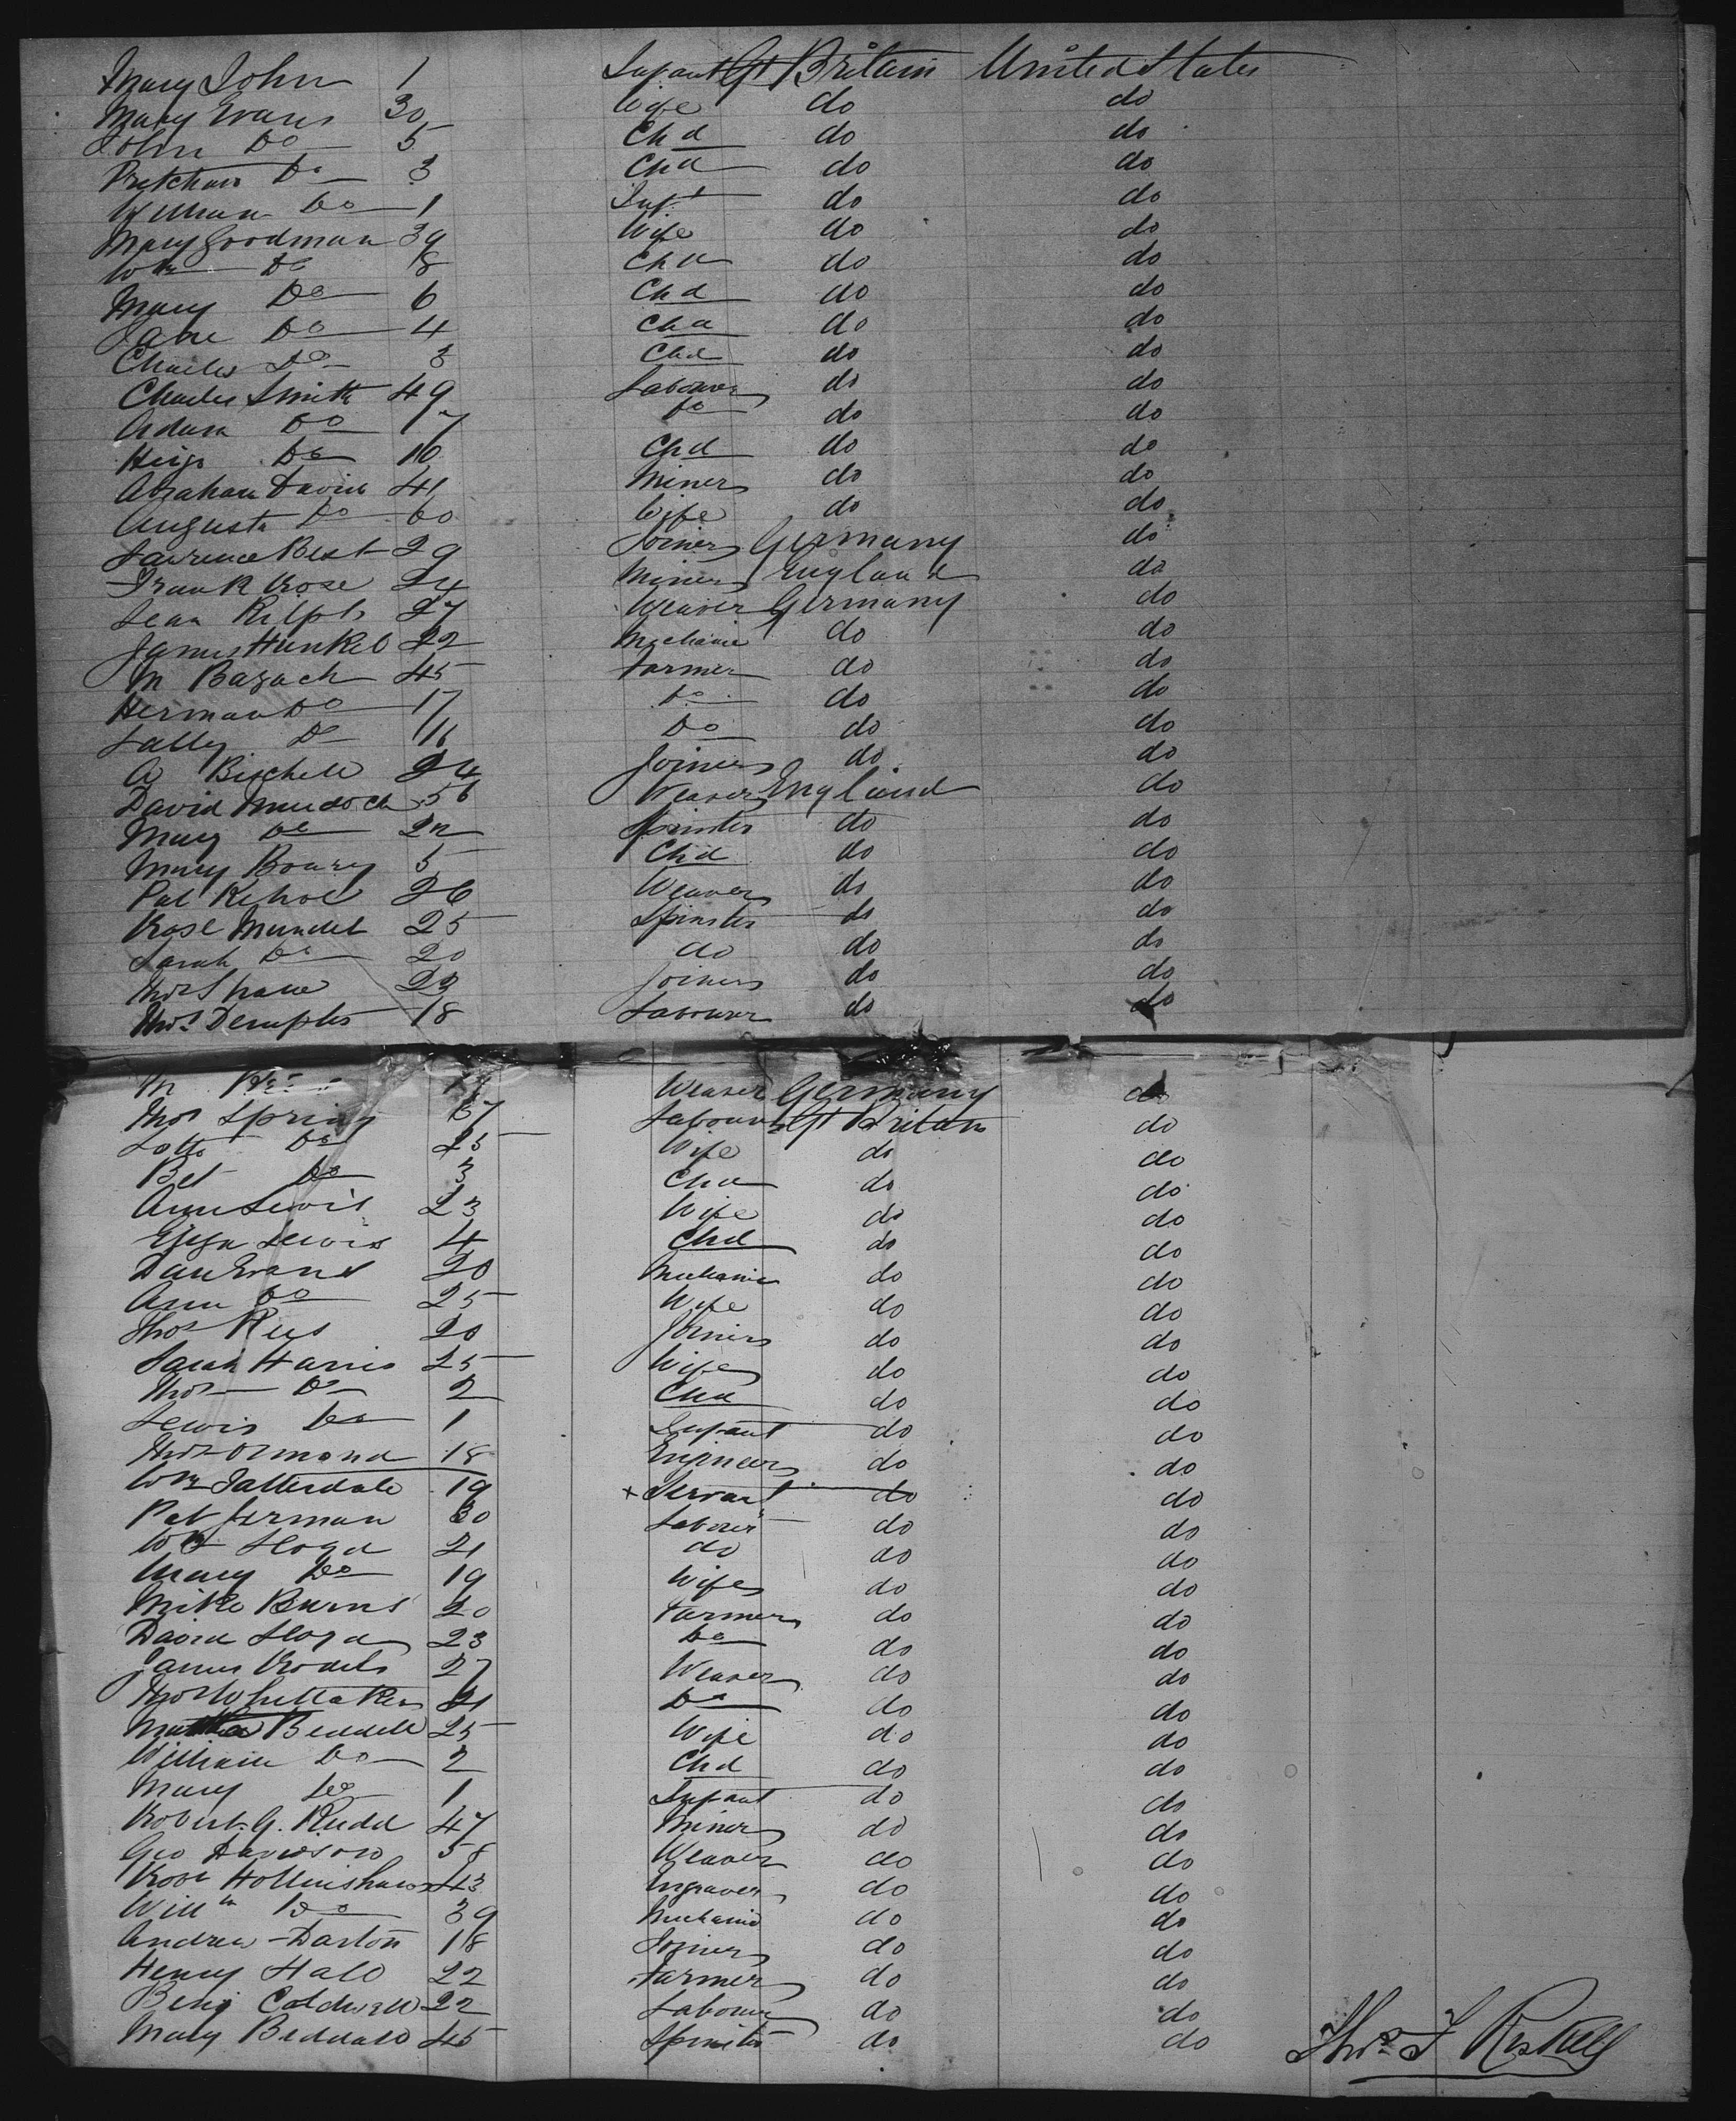 Mary John 1 Infant Gt Britain United States
Mary Evans 30 Wife do do
John Do 5 Chd do do
Do 3 Chd do do
William Do 1 Inft do do
Mary Goodman 39 Wife do do
Wm Do 8 Chd do do
Mary Do 6 Chd do do
Jane Do 4 Chd do do
Charles Do 3 Chd do do
Charles Smith 49 Labourer do do
Adam Do 17 Do do do
Do 10 Chd do do
Abraham David 41 Miner do do
Augusta Do 60 Wife do do
Lawrence Best 29 Joiner Germany do
Frank Rose 24 Miner England do
27 Weaver Germany do
James Hunkel 22 Mechanic do do
M Bazach 45 Farmer do do
Herman Do 17 Do do do
Sally Do 16 Do do do
A 24 Joiner do do
David Murdoch 56 Weaver England do
Mary Do 22 Spinster do do
Mary 5 Chd do do
Pat Kehoe 26 Weaver do do
Rose 25 Spinster do do
Sarah Do 20 do do do
Thos 23 Joiner do do
Thos 18 Labourer do do
M Weaver Germany do
Thos Spring Labourer Gt Britain do
Do 25 Wife do do
Bet Do 3 Chd do do
Ann Lewis 23 Wife do do
Eliza Lewis 4 Chd do do
Dan Evans 20 Mechanic do do
Ann Do 25 Wife do do
Thos Rees 20 Joiner do do
Sarah Harris 25 Wife do do
Thos Do 2 Chd do do
Lewis Do 1 Infant do do
Thos Ormond 18 Engineer do do
Wm 19 + Servant do do
Pat Jerman 30 Laborer do do
Wm Lloyd 21 do do do
Mary Do 19 Wife do do
Mike Burns 20 Farmer do do
David Lloyd 23 Do do do
James 27 Weaver do do
Thos Whittaker 21 Do do do
Martha 25 Wife do do
William Do 2 Chd do do
Mary Do 1 Infant do do
Robert G. Rudd 47 Miner do do
Geo Davidson 58 Weaver do do
Robt Hollinshaw 43 Engraver do do
Willm Do 39 Mechanic do do
Andrew Darton 18 Joiner do do
Henry Hall 22 Farmer do do
Benj Caldwell 22 Labourer do do
Mary 45 Spinster do do